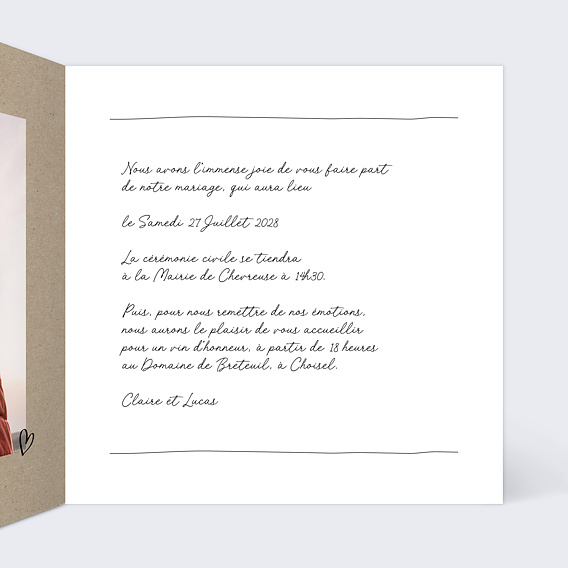 Nous avons l'immense joie de vous faire part
de notre mariage, qui aura lieu
le Samedi 27 Juillet 2028
La cérémonie civile se tiendra
à la Mairie de Chevreuse à 14h30.
Puis, pour nous remettre de nos émotions,
nous aurons le plaisir de vous accueillir
pour un vin d'honneur, à partir de 18 heures
au Domaine de Breteuil, à Choisel.
Claire et Lucas